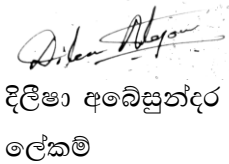 දිලීෂා අබේසුන්දර
ලේකම්